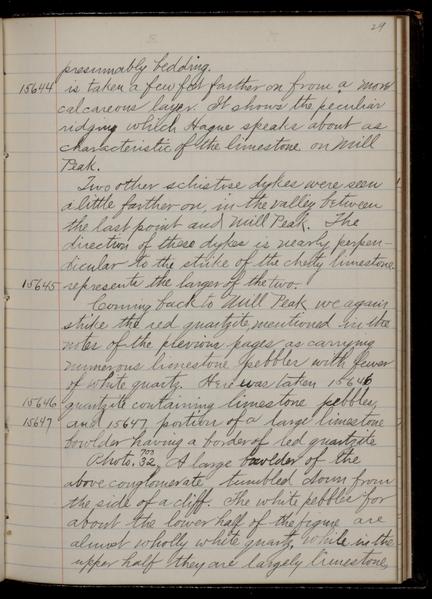 29
presumably bedding.
15644 is taken a few feet farther on from a more
calcareous layer. It shows the peculiar
ridging which Hague speaks about as
characteristic of the limestone on Mill
Peak.
Two other schistose dykes were seen
a little farther on, in the valley between
the last point and Mill Peak. The
direction of these dykes is nearly perpen-
dicular to the strike of the cherty limestone.
15645 represents the larger of the two.
Coming back to Mill Peak we again
strike the red quartzite mentioned in the
notes of the previous pages as carrying
numerous limestone pebbles with fewer
of white quartz. Here was taken 15646
15646 quartzite containing limestone pebbles,
15647 and 15647 portion of a large limestone
bowlder having a border of red quartzite
Photo. 32. A large bowlder of the
above conglomerate tumbled down from
the side of a cliff. The white pebbles for
about the lower half of the figure are
almost wholly white quartz, while in the
upper half they are largely limestone,